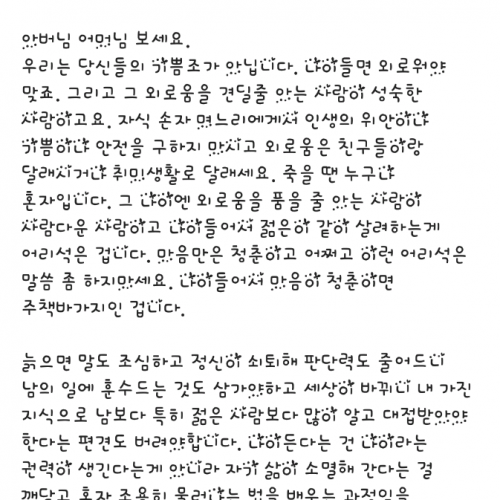 아버님 어머님 보세요.
우리는 당신들의 기쁨조가 아닙니다. 나이들면 외로워야
맞죠. 그리고 그 외로움을 견딜줄 아는 사람이 성숙한
사람이고요. 자식 손자 며느리에게서 인생의 위안이나
기쁨이나 안전을 구하지 마시고 외로움은 친구들이랑
달래시거나 취미생활로 달래세요. 죽을 땐 누구나
혼자입니다. 그 나이엔 외로움을 품을 줄 아는 사람이
사람다운 사람이고 나이들어서 젊은이 같이 살려하는게
어리석은 겁니다. 마음만은 청춘이고 어쩌고 이런 어리석은
말씀 좀 하지마세요. 나이들어서 마음이 청춘이면
주책바가지인 겁니다.

늙으면 말도 조심하고 정신이 쇠퇴해 판단력도 줄어드니
남의 일에 훈수드는 것도 삼가야하고 세상이 바뀌니 내 가진
지식으로 남보다 특히 젊은 사람보다 많이 알고 대접받아야
한다는 편견도 버려야합니다. 나이든다는 건 나이라는
권력이 생긴다는게 아니라 자기 삶이 소멸해 간다는 걸
깨닫고 혼자 조용히 물러나는 법을 배우는 과정임을